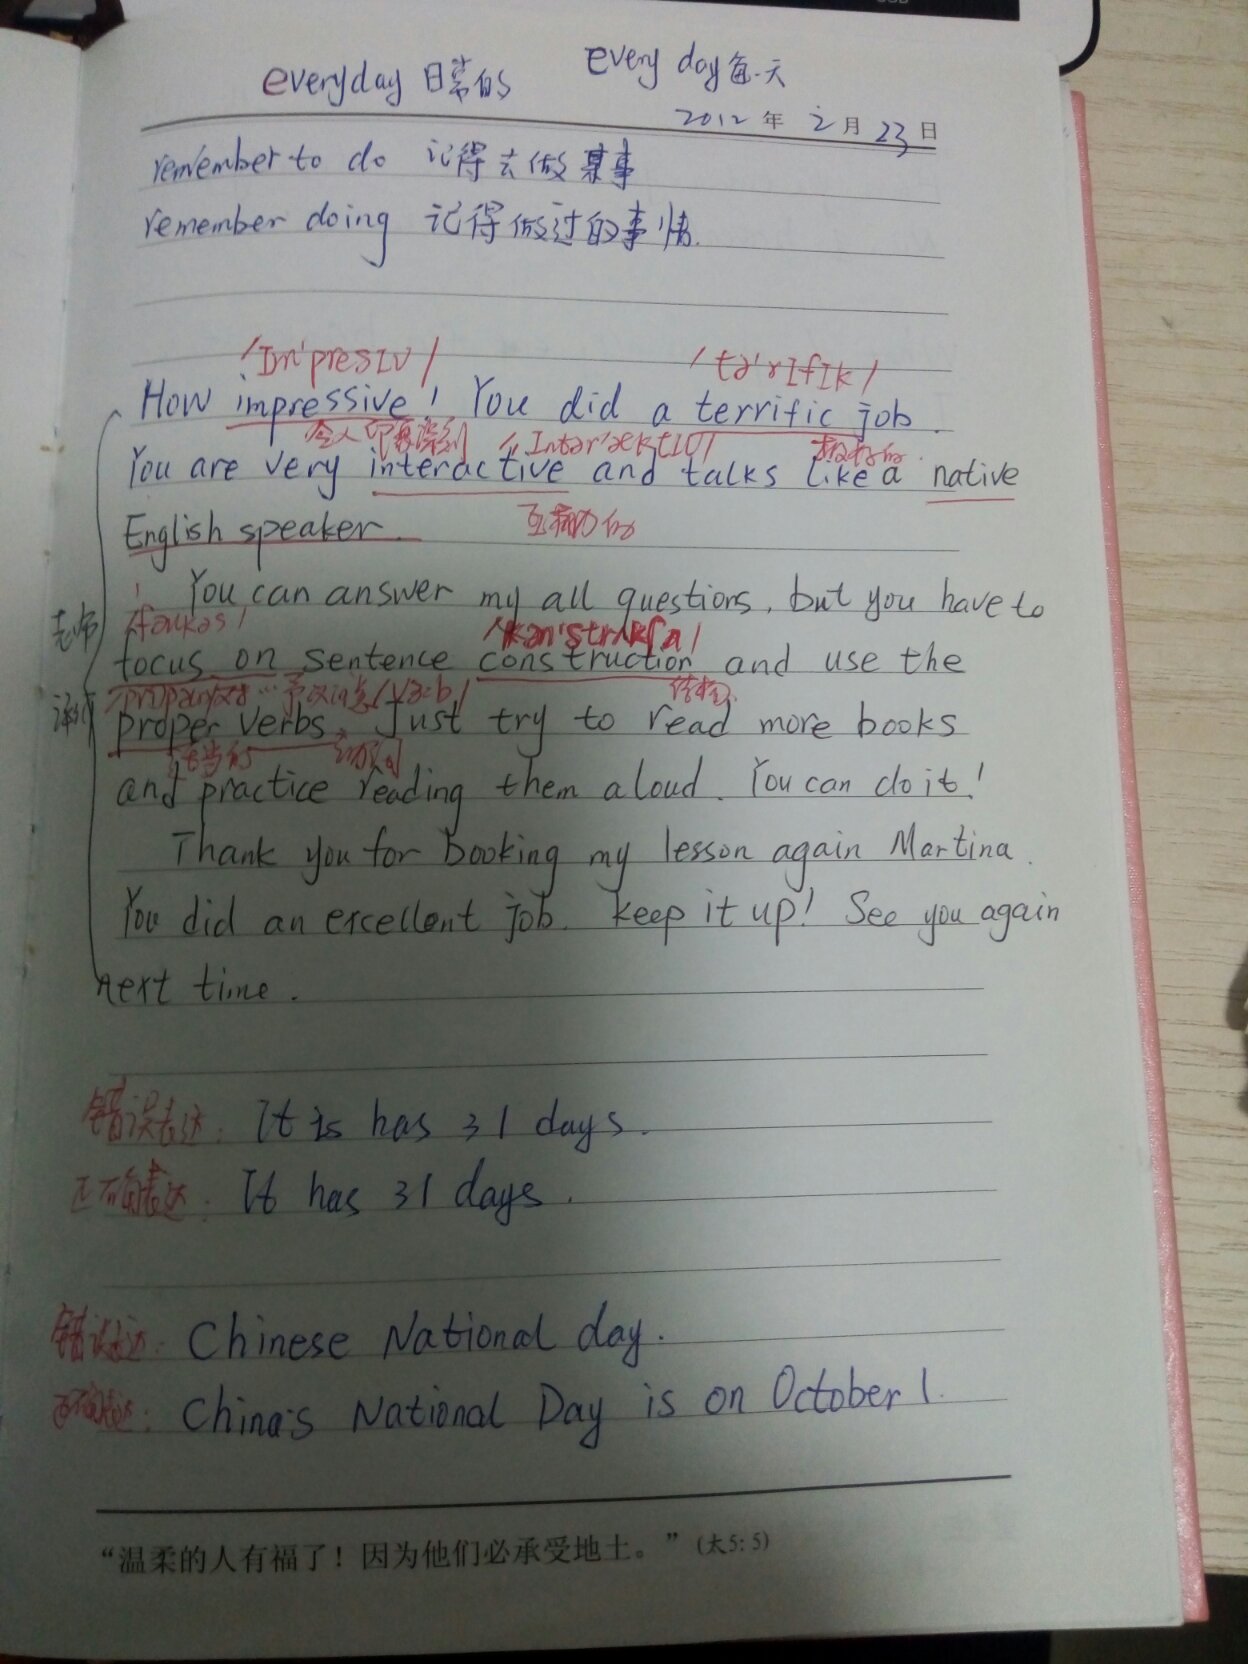 everyday 日常的 every day 每天
2012 年 2 月 23 日
remember to do 记得去做某事
remember doing 记得做过的事情.
/Im'presIv/ /tə'rIfIk/
How impressive! You did a terrific job.
令人印象深刻
You are very interactive and talks like a native
English speaker.
You can answer my all questions, but you have to
老师 /fəukəs/ /kən'strʌkʃn/
focus on sentence construction and use the
结构
proper verbs. Just try to read more books
适当的 动词
and practice reading them aloud. You can do it!
Thank you for booking my lesson again Martina.
You did an excellent job. keep it up! See you again
next time.
错误表达: It is has 31 days.
正确表达: It has 31 days.
错误表达: Chinese National day.
正确表达: China's National Day is on October 1.
“温柔的人有福了！因为他们必承受地土。”(太5:5)